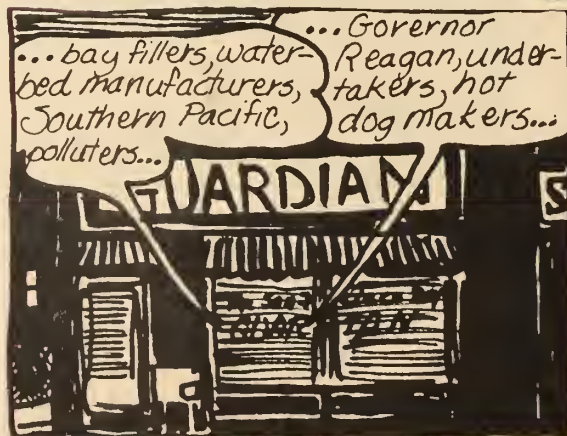 ... bay fillers, water-
bed manufacturers,
Southern Pacific,
polluters...
... Governor
Reagan, under-
takers, hot
dog makers...
GUARDIAN
S